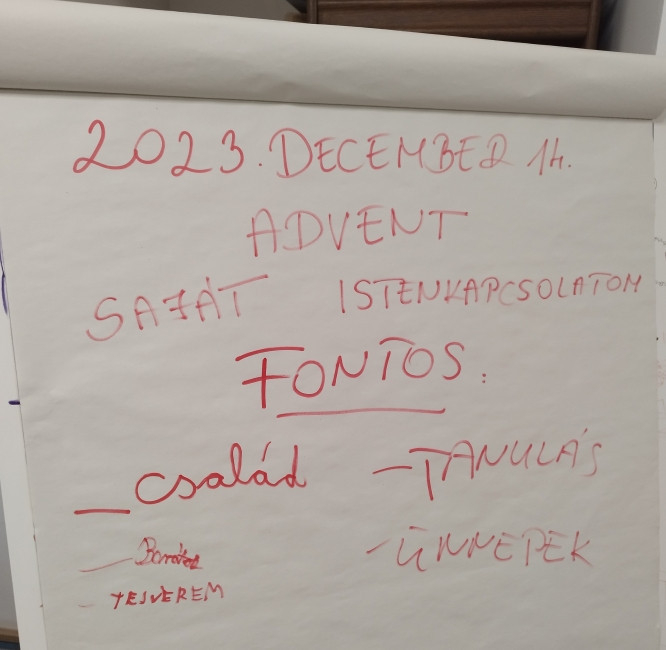 2023. DECEMBER 14.
ADVENT
SAJÁT ISTENKAPCSOLATOM
FONTOS:
— család
— TANULÁS
— Barátok
— ÜNNEPEK
- TESVEREM